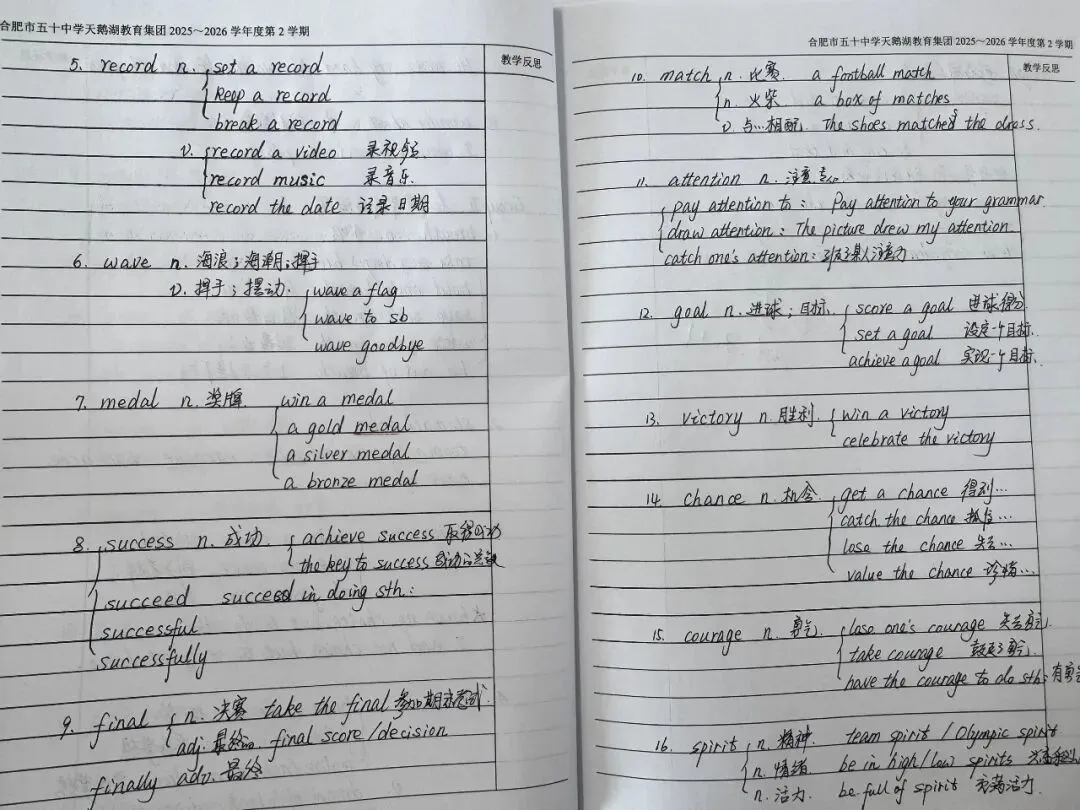 合肥市五十中学天鹅湖教育集团 2025～2026 学年度第 2 学期
教学反思
5. record n. set a record
keep a record
break a record
v. record a video 录视频
record music 录音乐
record the date 记录日期
6. wave n. 海浪；海潮；挥手
v. 挥手；摆动. wave a flag
wave to sb
wave goodbye
7. medal n. 奖牌 win a medal
a gold medal
a silver medal
a bronze medal
8. success n. 成功 achieve success 取得成功
the key to success 成功的关键
succeed succeed in doing sth:
successful
successfully
9. final n. 决赛 take the final 参加期末考试
adj. 最终的 final score/decision
finally adv. 最终
合肥市五十中学天鹅湖教育集团 2025～2026 学年度第 2 学期
教学反思
10. match n. 比赛. a football match
n. 火柴 a box of matches
v. 与…相配. The shoes matches the dress.
11. attention n. 注意
pay attention to: Pay attention to your grammar
draw attention: The picture drew my attention
catch one's attention: 吸引某人注意力
12. goal n. 进球；目标. score a goal 进球得分
set a goal 设定一个目标.
achieve a goal 实现一个目标.
13. victory n. 胜利. win a victory
celebrate the victory
14. chance n. 机会 get a chance 得到…
catch the chance 抓住…
lose the chance 失去…
value the chance 珍惜…
15. courage n. 勇气 lose one's courage 失去勇气
take courage 鼓起勇气
have the courage to do sth: 有勇气
16. spirit n. 精神. team spirit / Olympic spirit
n. 情绪 be in high/low spirits
n. 活力. be full of spirit 充满活力.